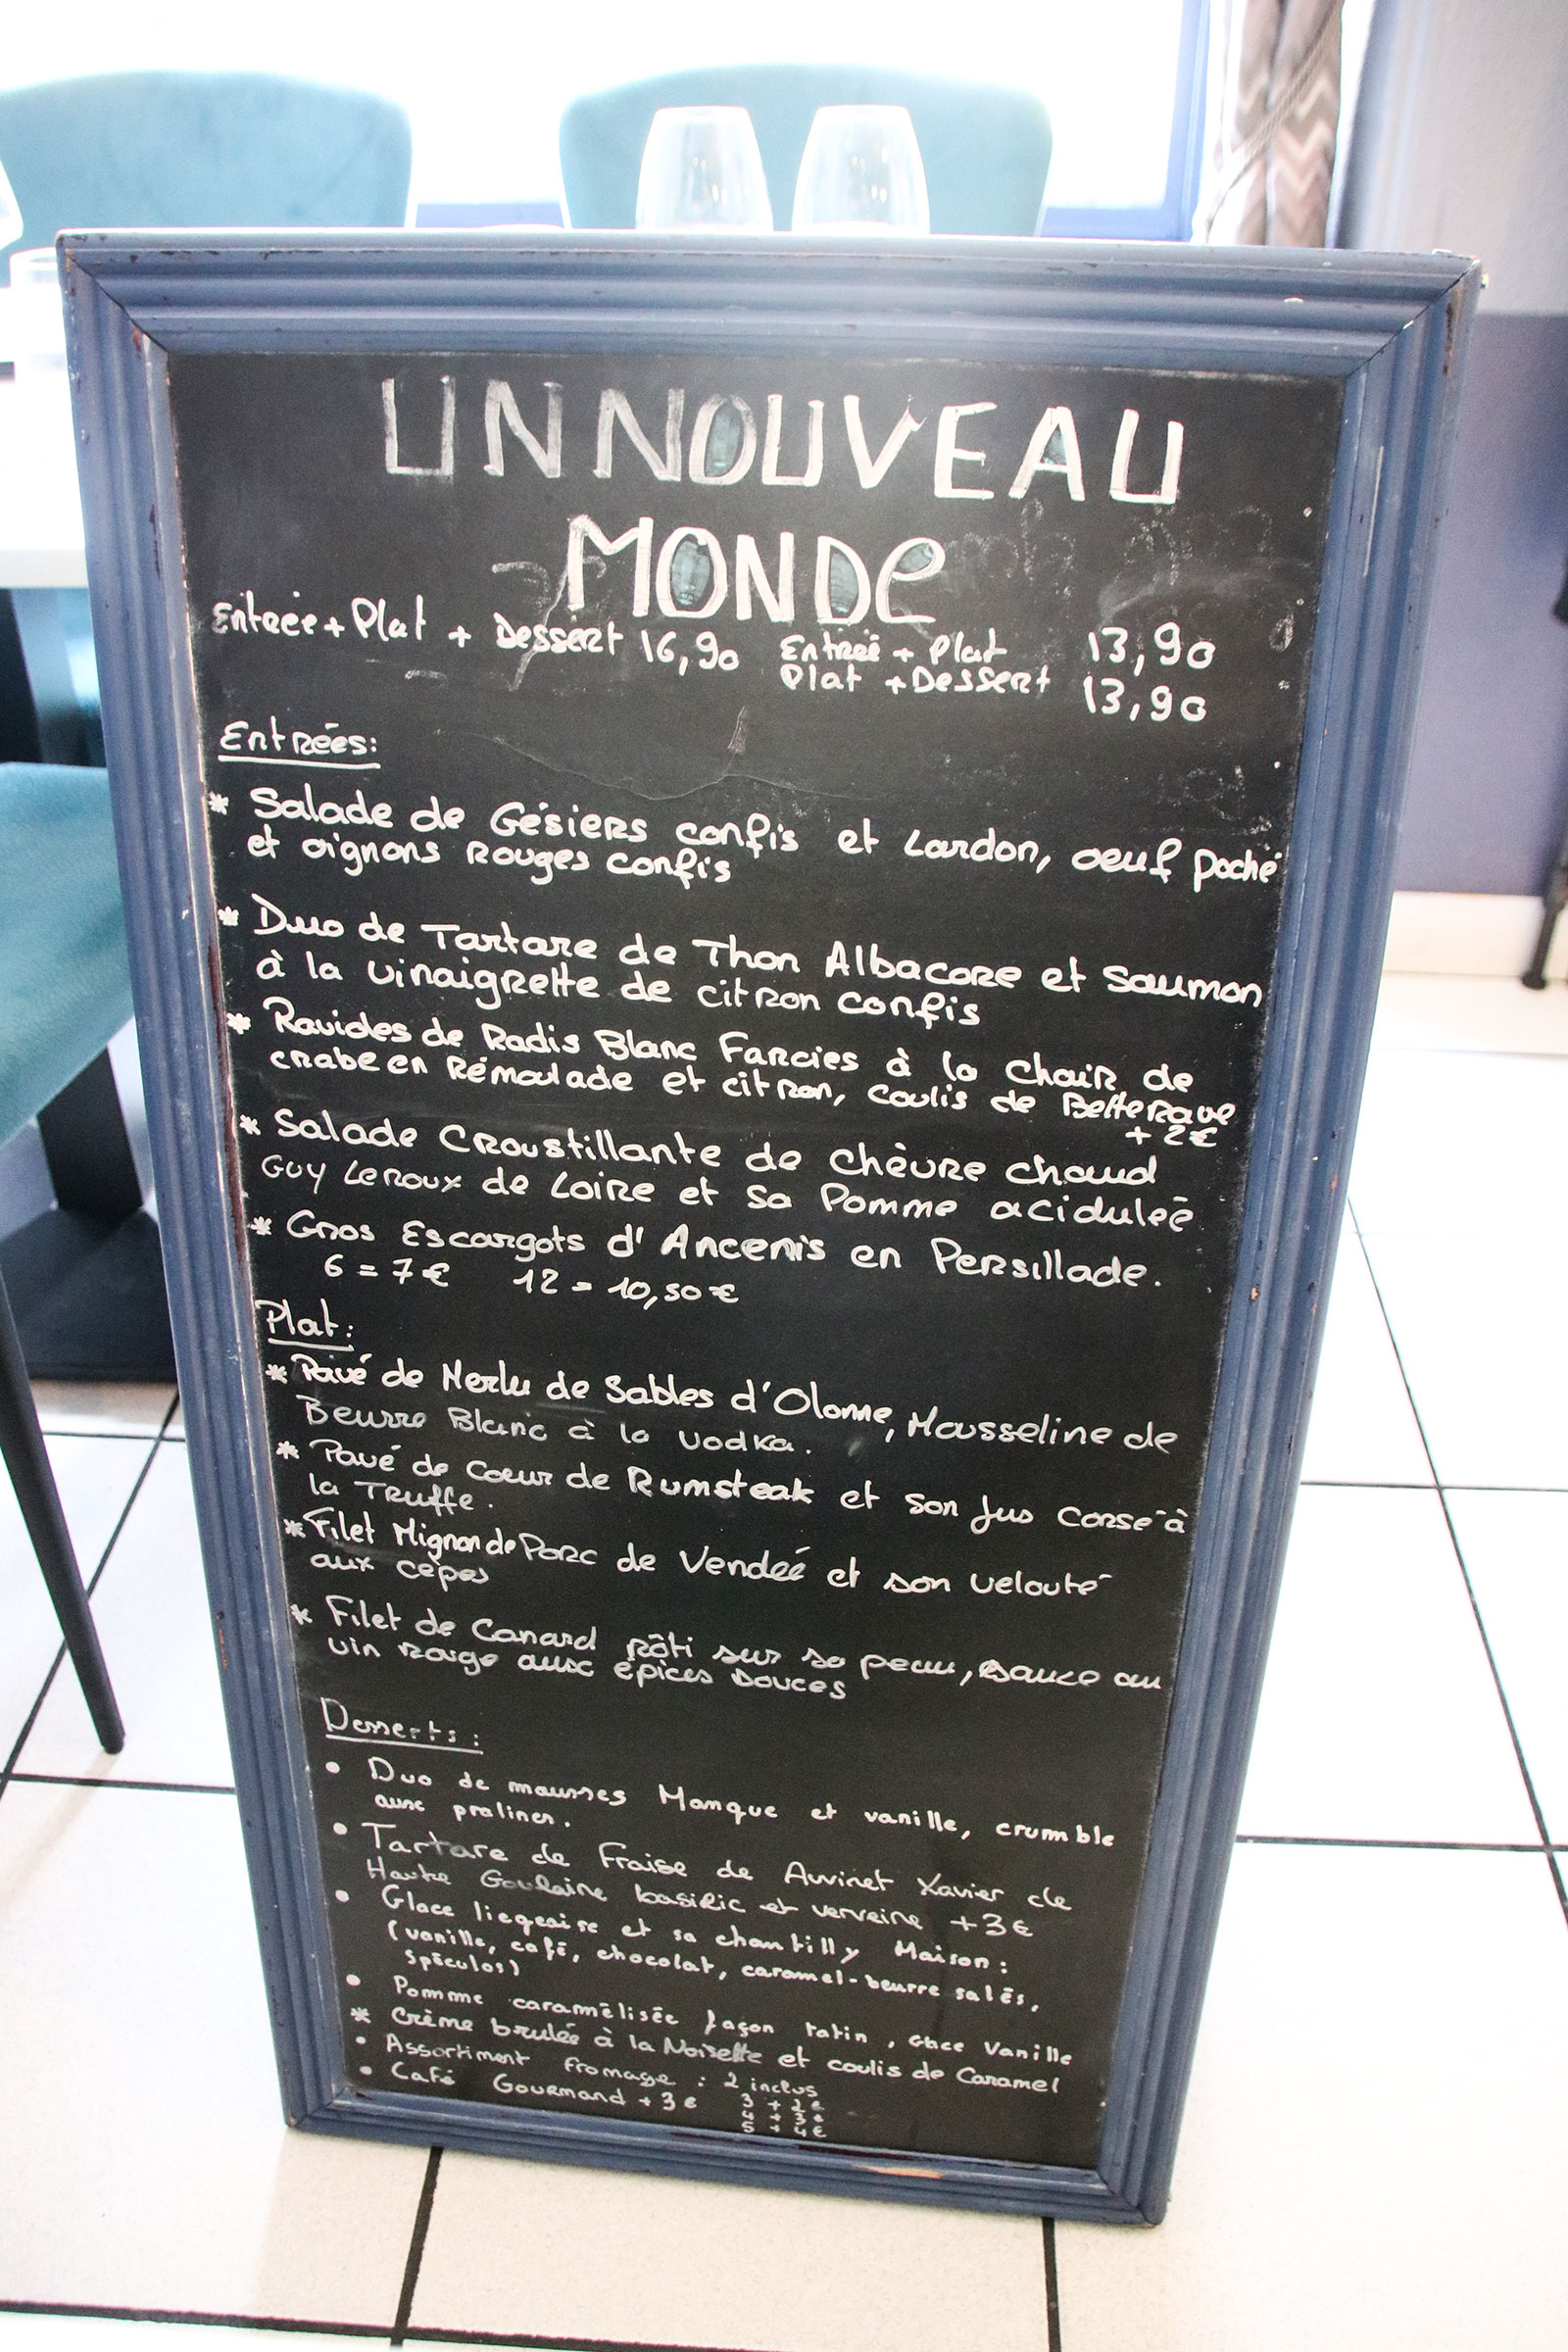 UN NOUVEAU
MONDE
Entrée + Plat + Dessert 16,90
Entrée + Plat 13,90
Plat + Dessert 13,90
Entrées:
* Salade de Gésiers confis et Lardon, oeuf poché
et oignons Rouges confis
* Duo de Tartare de Thon Albacore et Saumon
à la vinaigrette de citron confis
* Ravioles de Radis Blanc Farcies à la chair de
crabe en Rémoulade et citron, coulis de Betterave
+ 2€
* Salade Croustillante de chèvre chaud
Guy Leroux de Loire et sa Pomme acidulée
* Gros Escargots d'Ancenis en Persillade.
6 = 7€ 12 = 10,50€
Plat:
* Pavé de Merlu de Sables d'Olonne, Mousseline de
Beurre Blanc à la Vodka.
* Pavé de Coeur de Rumsteak et son Jus Corsé à
la Truffe.
* Filet Mignon de Porc de Vendée et son velouté
aux cèpes
* Filet de Canard rôti sur sa peau, sauce au
vin rouge aux épices douces
Desserts :
• Duo de mousses Mangue et vanille, crumble
aux pralines.
• Tartare de Fraise de Auvinet Xavier de
Haute Goulaine basilic et verveine +3€
• Glace liegeaise et sa chantilly Maison :
(vanille, café, chocolat, caramel-beurre salés,
spéculos)
• Pomme caramélisée façon tatin, Glace Vanille
* Crème brulée à la Noisette et coulis de Caramel
• Assortiment fromage : 2 inclus
3 + 2€
4 + 3€
5 + 4€
• Café Gourmand + 3€